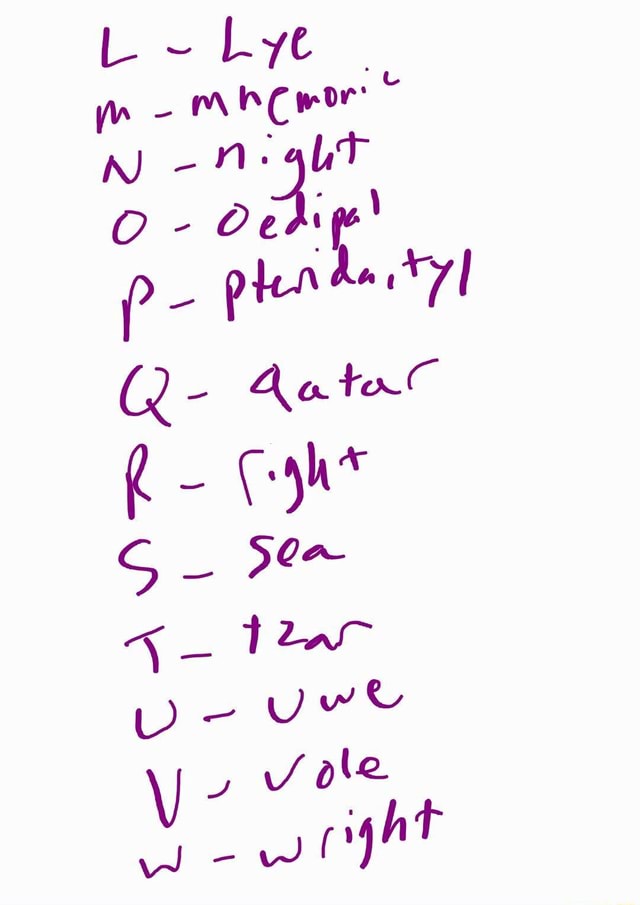 L - Lye
M - mnemonic
N - night
O - Oedipal
P - pteridactyl
Q - Qatar
R - right
S - Sea
T - tzar
U - Uwe
V - Vole
W - wright